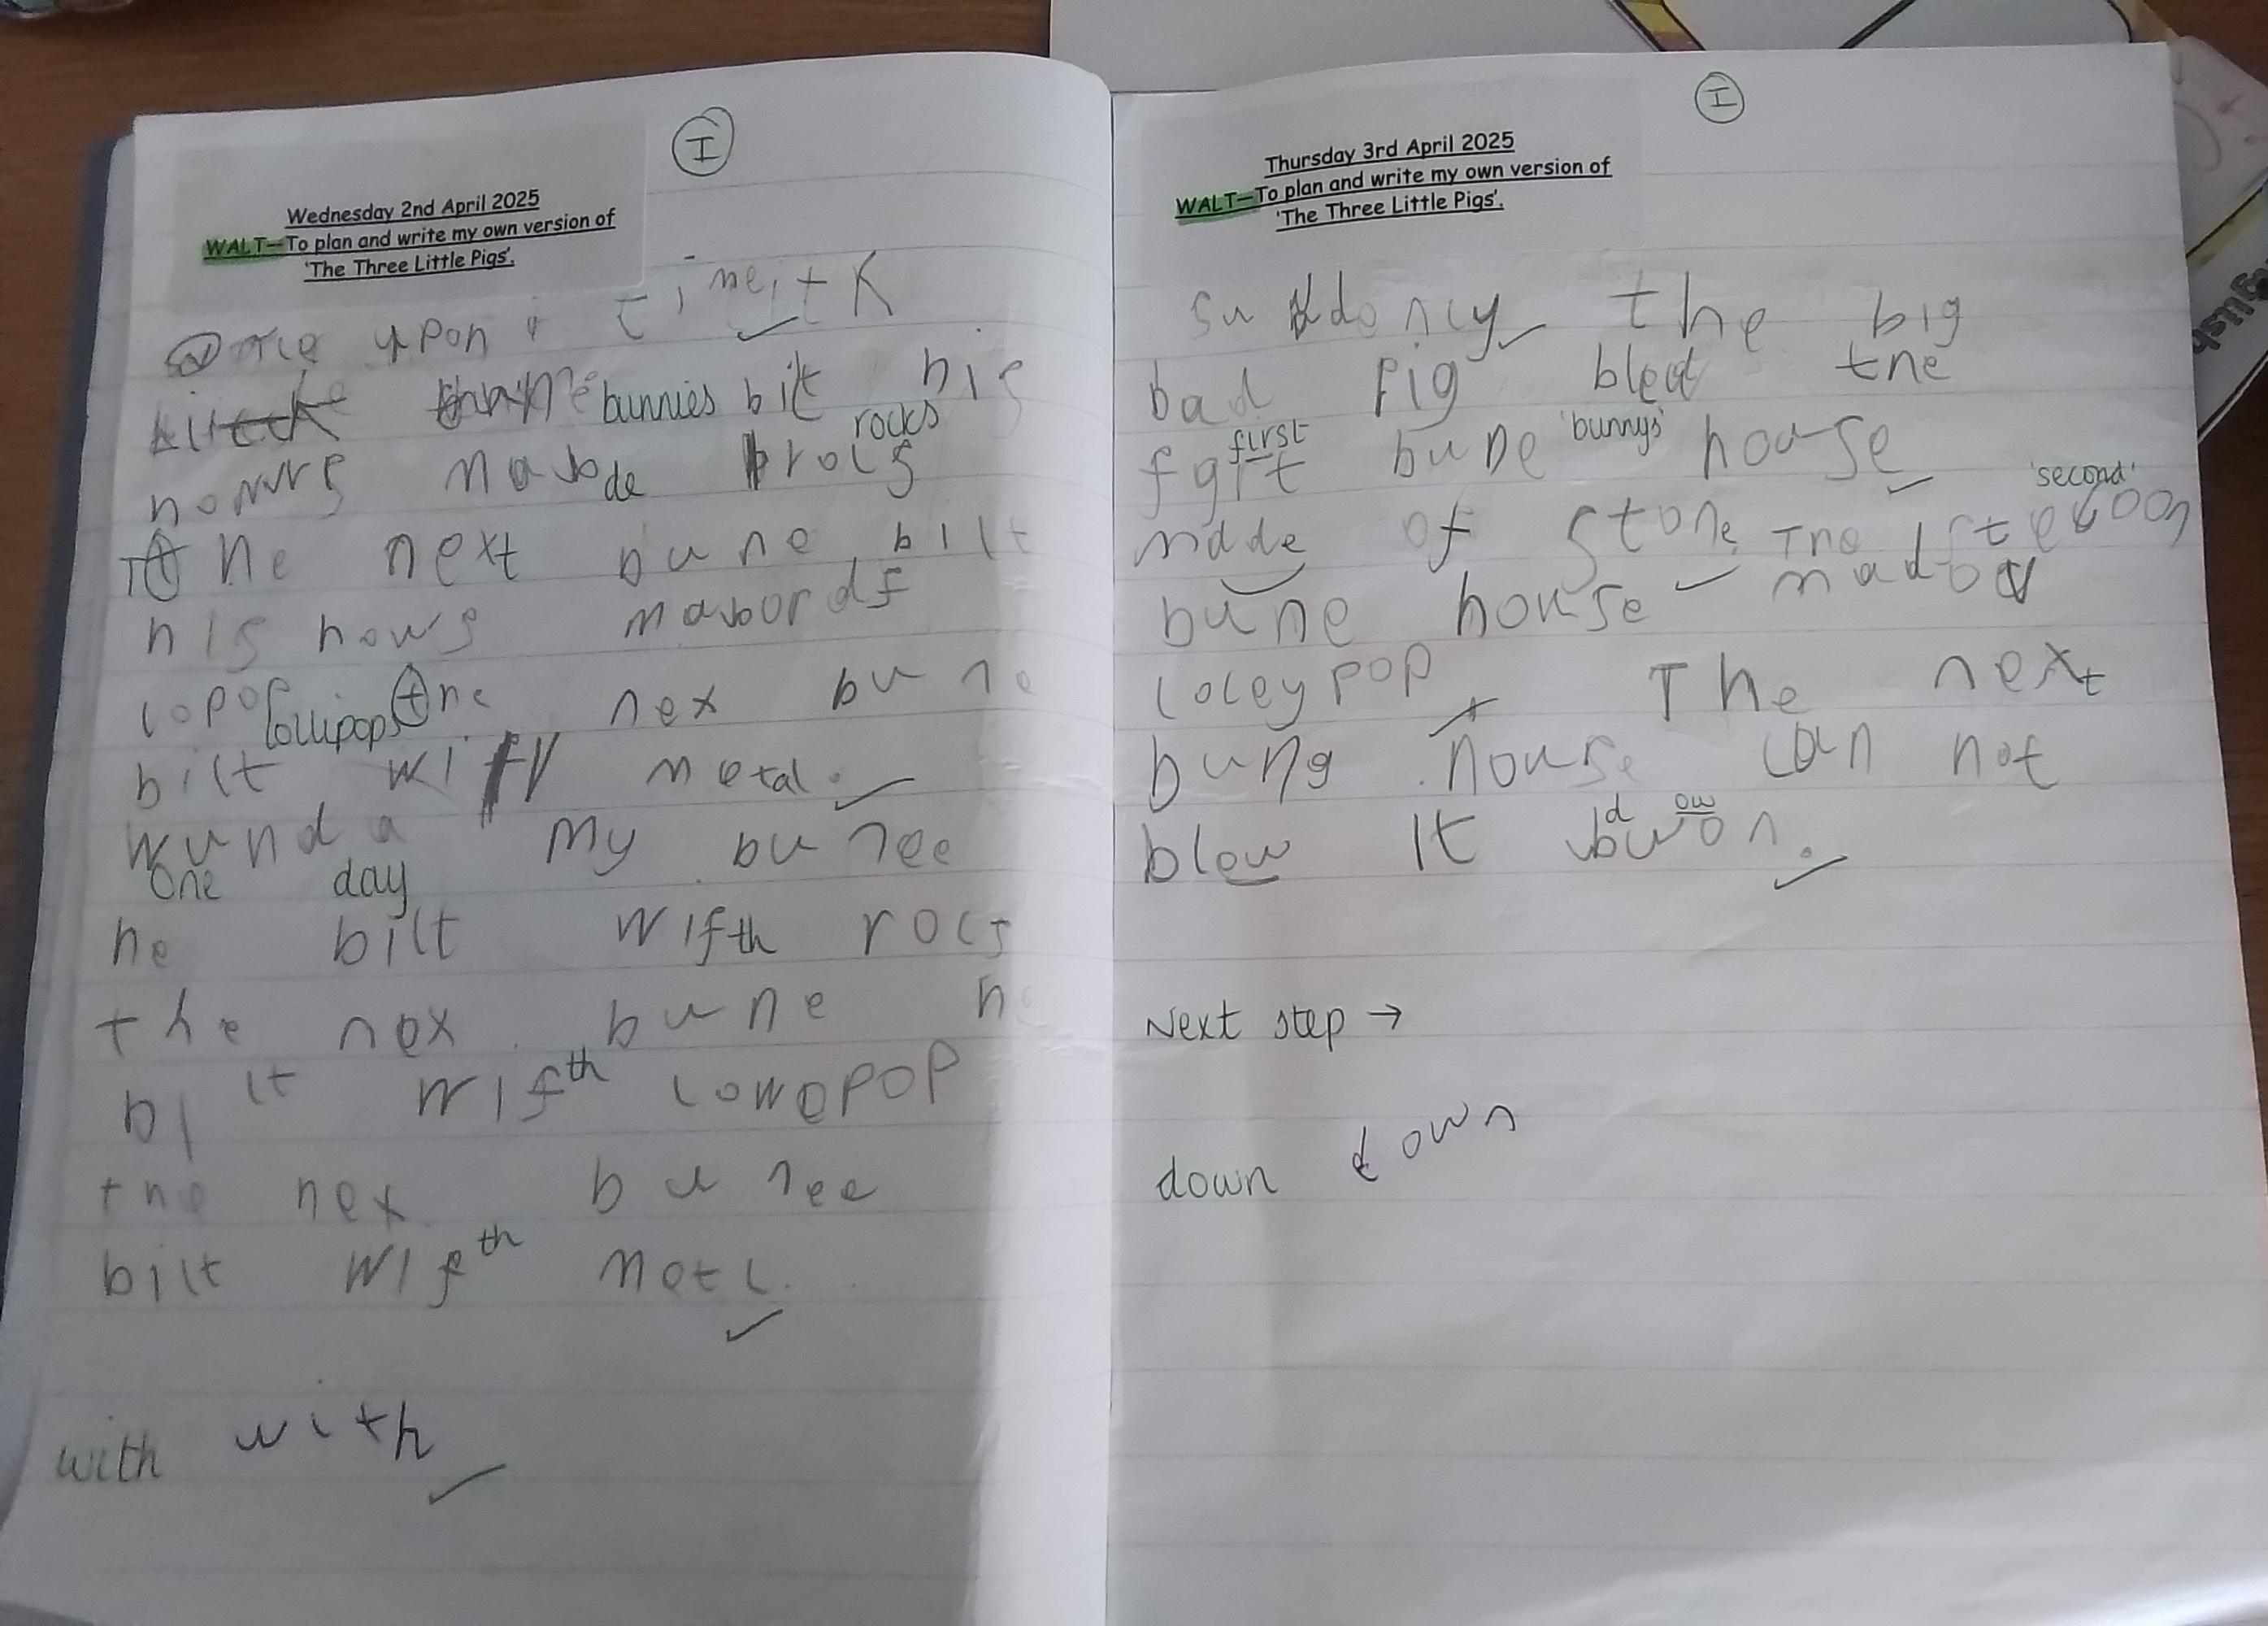 I
Wednesday 2nd April 2025
WALT—To plan and write my own version of
'The Three Little Pigs'.
once upon a time
bunnies bilt his
rocks
made
The next bune bilt
his hows
lopop lollipops the nex bune
bilt metal.
wund a my bunee
one day
he bilt wifth rocs
the nex bune he
bilt wifth lowepop
the nex bunee
bilt wifth metl.
with with
I
Thursday 3rd April 2025
WALT—To plan and write my own version of
'The Three Little Pigs'.
the big
bad Pig the
first 'bunnys'
bune house
'second'
made of stone The
bune house mad
loleypop The next
bung house can not
d ow
blow it
Next step →
down down